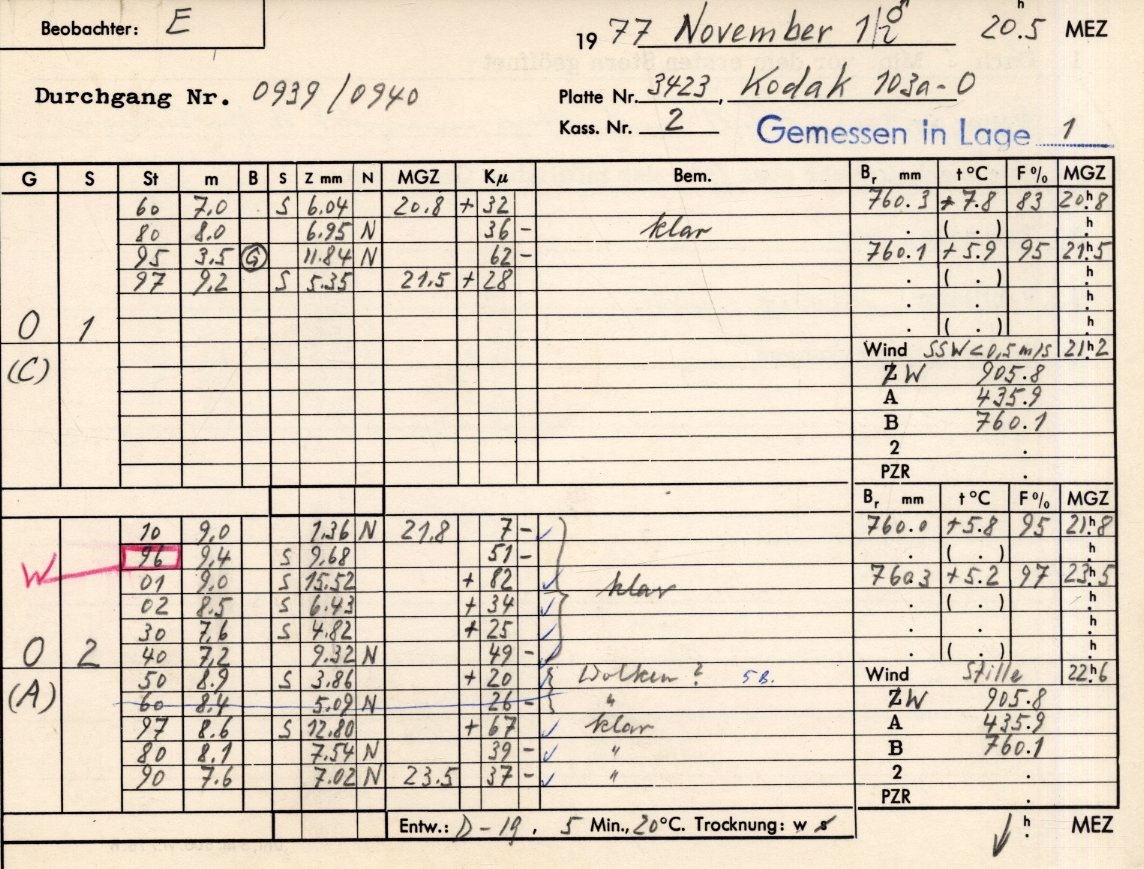 Beobachter: E
19 77 November 1/2 ♂ 20.5 h MEZ
Durchgang Nr. 0939/0940
Platte Nr. 3423, Kodak 103a-O
Kass. Nr. 2
Gemessen in Lage 1
G S St m B S Z mm N MGZ Kμ Bem. Br mm t °C F % MGZ
60 7.0 S 6.04 20.8 + 32 760.3 + 7.8 83 20h8
80 8.0 6.95 N 36 - klar . ( . ) h
95 3.5 G 11.84 N 62 - 760.1 + 5.9 95 21h5
97 9.2 S 5.35 21.5 + 28 . ( . ) h
. . h
0 1 . ( . ) h
Wind SSW < 0,5 m/s 21h2
(C) ZW 905.8
A 435.9
B 760.1
2 .
PZR .
Br mm t °C F % MGZ
10 9.0 1.36 N 21.8 7 - 760.0 + 5.8 95 21h8
96 9.4 S 9.68 51 - . ( . ) h
W 01 9.0 S 15.52 + 82 klar 760.3 + 5.2 97 23h5
02 8.5 S 6.43 + 34 . ( . ) h
30 7.6 S 4.82 + 25 . . h
0 2 40 7.2 9.32 N 49 - . ( . ) h
50 8.9 S 3.86 + 20 Wolken ? 5 B. Wind Stille 22h6
(A) 60 8.4 5.09 N 26 - " ZW 905.8
97 8.6 S 12.80 + 67 klar A 435.9
80 8.1 7.54 N 39 - " B 760.1
90 7.6 7.02 N 23.5 37 - " 2 .
PZR .
Entw.: D-19, 5 Min., 20 °C. Trocknung: w s h MEZ